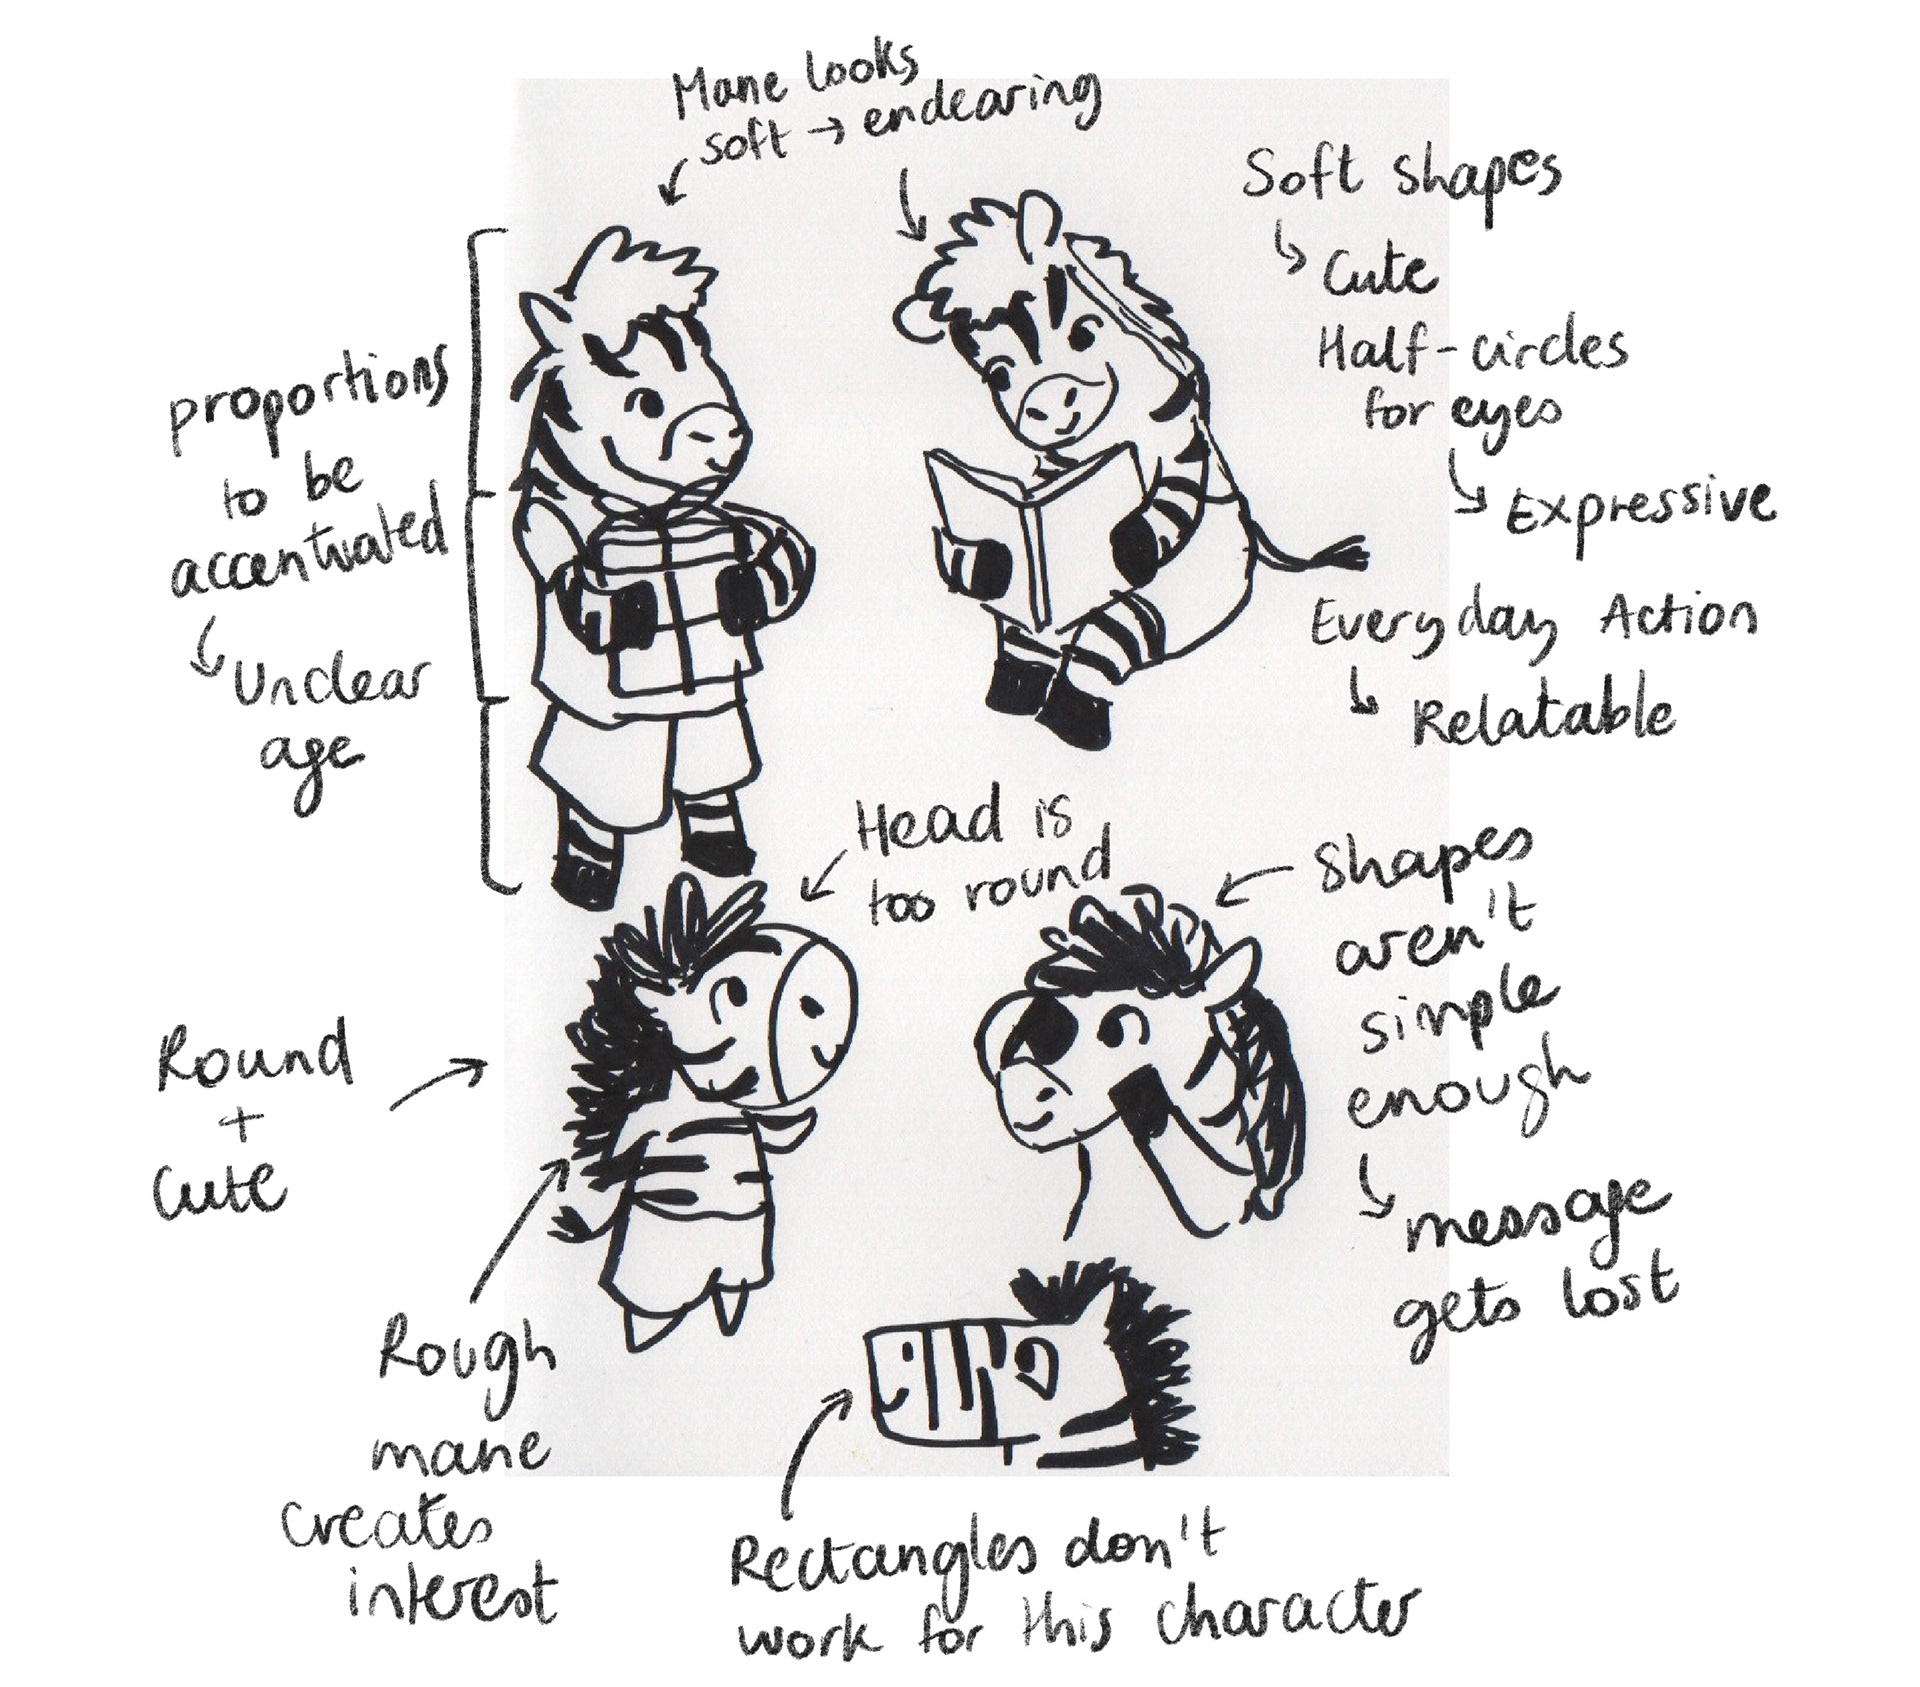 Mane looks
soft → endearing
Soft shapes
↳ Cute
Half-circles
for eyes
↳ Expressive
Everyday Action
↳ Relatable
proportions
to be
accentuated
↳ Unclear
age
Head is
too round
Shapes
aren't
simple
enough
↳ message
gets lost
Round
+
Cute
Rough
mane
creates
interest
Rectangles don't
work for this character